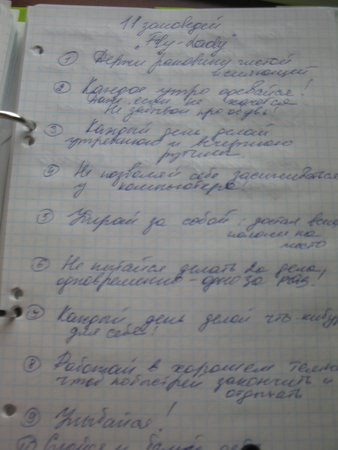 11 заповедей
"Fly-Lady"
1 Держи раковину чистой
и сияющей
2 Каждое утро одевайся!
Даже если не хочется
Не забывай про обувь!
3 Каждый день делай
утреннюю и вечернюю
рутину
4 Не позволяй себе засиживаться
у компьютера!
5 Убирай за собой: достал вещь
положи на
место
6 Не пытайся делать два дела
одновременно - одно за раз!
7 Каждый день делай что-нибудь
для себя!
8 Работай в хорошем темпе
чтоб побыстрей закончить и
отдыхать
9 Улыбайся!
10